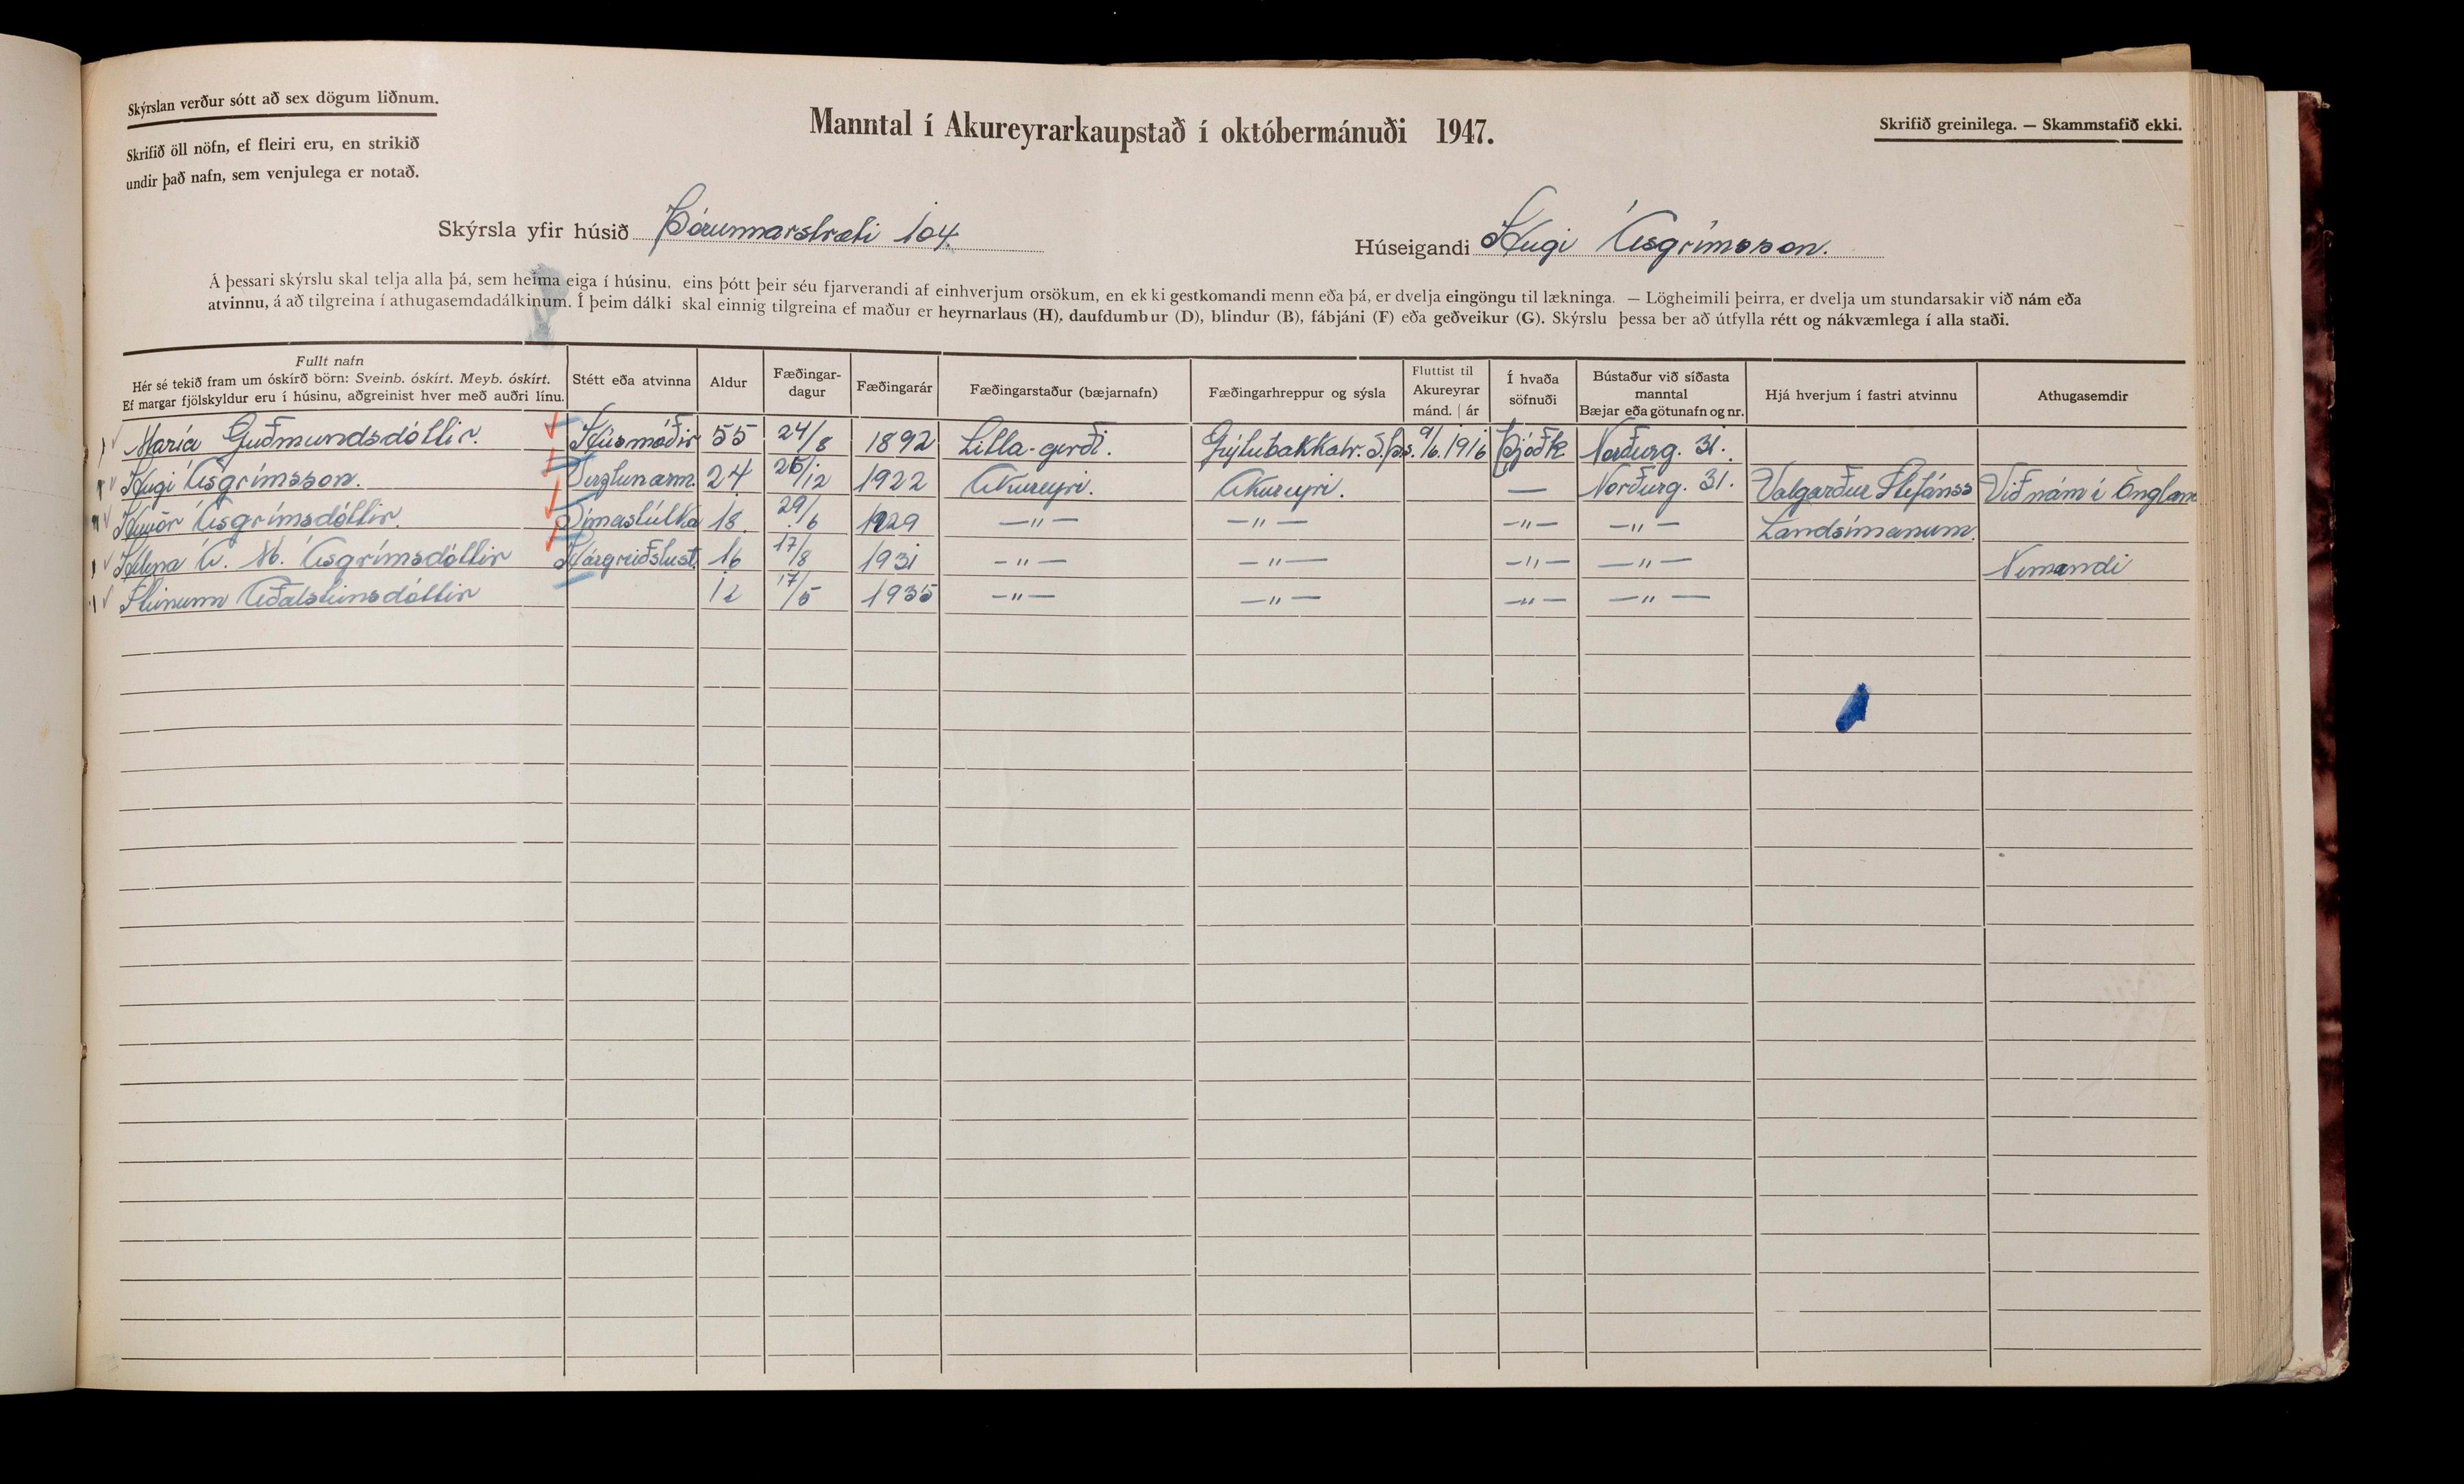 Skýrslan verður sótt að sex dögum liðnum.
Skrifið öll nöfn, ef fleiri eru, en strikið
undir það nafn, sem venjulega er notað.
Manntal í Akureyrarkaupstað í októbermánuði 1947.
Skrifið greinilega. — Skammstafið ekki.
Skýrsla yfir húsið Þórunnarstræti 104.
Húseigandi Hugi Ásgrímsson.
Á þessari skýrslu skal telja alla þá, sem heima eiga í húsinu, eins þótt þeir séu fjarverandi af einhverjum orsökum, en ekki gestkomandi menn eða þá, er dvelja eingöngu til lækninga. — Lögheimili þeirra, er dvelja um stundarsakir við nám eða
atvinnu, á að tilgreina í athugasemdadálkinum. Í þeim dálki skal einnig tilgreina ef maður er heyrnarlaus (H), daufdumbur (D), blindur (B), fábjáni (F) eða geðveikur (G). Skýrslu þessa ber að útfylla rétt og nákvæmlega í alla staði.
Fullt nafn
Hér sé tekið fram um óskírð börn: Sveinb. óskírt. Meyb. óskírt.
Ef margar fjölskyldur eru í húsinu, aðgreinist hver með auðri línu.
Stétt eða atvinna
Aldur
Fæðingar-
dagur
Fæðingarár
Fæðingarstaður (bæjarnafn)
Fæðingarhreppur og sýsla
Fluttist til
Akureyrar
mánd. | ár
Í hvaða
söfnuði
Bústaður við síðasta
manntal
Bæjar eða götunafn og nr.
Hjá hverjum í fastri atvinnu
Athugasemdir
María Guðmundsdóttir. Húsmóðir 55 24/8 1892 Litla-gerði. Grýtubakkahr. S.þs. 9/6. 1916 Þjóðk Norðurg. 31.
Hugi Ásgrímsson. Verzlunarm. 24 26/12 1922 Akureyri. Akureyri. — Norðurg. 31. Valgarður Stefánss Við nám í Englan
Ásgrímsdóttir. Símastúlka 18. 29/6 1929 —"— —"— —"— —"— Landsímanum.
Helena Á. M. Ásgrímsdóttir Hárgreiðslust. 16 17/8 1931 —"— —"— —"— —"— Nemandi
Steinunn Aðalsteinsdóttir 12 17/5 1935 —"— —"— —"— —"—